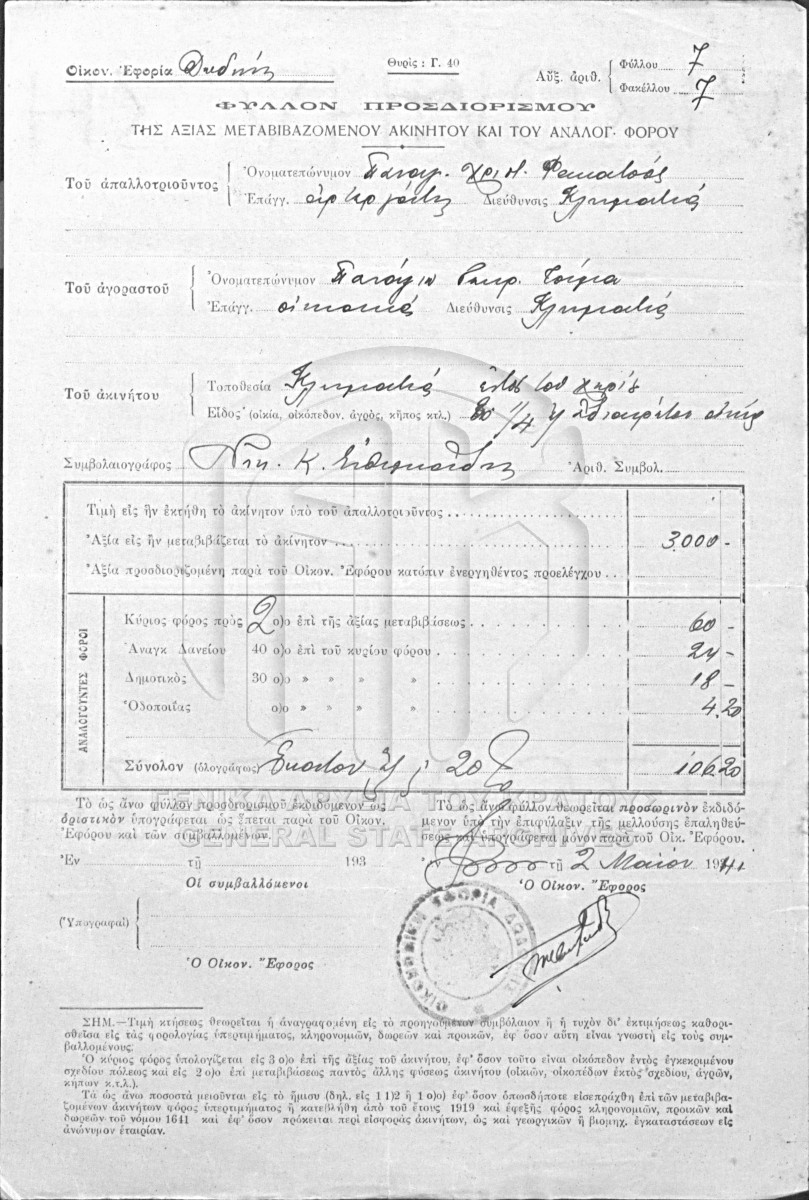 Οἰκον. Ἐφορία
Θυρὶς : Γ. 40
Αὔξ. ἀριθ. Φύλλου 7
Φακέλλου 7
ΦΥΛΛΟΝ ΠΡΟΣΔΙΟΡΙΣΜΟΥ
ΤΗΣ ΑΞΙΑΣ ΜΕΤΑΒΙΒΑΖΟΜΕΝΟΥ ΑΚΙΝΗΤΟΥ ΚΑΙ ΤΟΥ ΑΝΑΛΟΓ· ΦΟΡΟΥ
Τοῦ ἀπαλλοτριοῦντος
Ὀνοματεπώνυμον Παναγ. Χριστ.
Ἐπάγγ. Διεύθυνσις Κληματιά
Τοῦ ἀγοραστοῦ
Ὀνοματεπώνυμον
Ἐπάγγ. οἰκιακά Διεύθυνσις Κληματιά
Τοῦ ἀκινήτου
Τοποθεσία Κληματιά ἐντὸς τοῦ
Εἶδος (οἰκία, οἰκόπεδον, ἀγρός, κῆπος κτλ.) 1/4
Συμβολαιογράφος Κ. Ἀριθ. Συμβολ.
Τιμὴ εἰς ἣν ἐκτήθη τὸ ἀκίνητον ὑπὸ τοῦ ἀπαλλοτριοῦντος
Ἀξία εἰς ἣν μεταβιβάζεται τὸ ἀκίνητον 3000 -
Ἀξία προσδιοριζομένη παρὰ τοῦ Οἰκον. Ἐφόρου κατόπιν ἐνεργηθέντος προελέγχου
ΑΝΑΛΟΓΟΥΝΤΕΣ ΦΟΡΟΙ
Κύριος φόρος πρὸς 2 ο)ο ἐπὶ τῆς ἀξίας μεταβιβάσεως 60 -
Ἀναγκ Δανείου 40 ο)ο ἐπὶ τοῦ κυρίου φόρου 24 -
Δημοτικὸς 30 ο)ο » » » 18 -
Ὁδοποιΐας ο)ο » » » 4.20
Σύνολον (ὁλογράφως) Ἑκατὸν ἓξ 20 106.20
ΓΕΝΙΚΑ ΑΡΧΕΙΑ ΤΟΥ ΚΡΑΤΟΥΣ
GENERAL STATE ARCHIVES
Τὸ ὡς ἄνω φύλλον προσδιορισμοῦ ἐκδιδόμενον ὡς
ὁριστικὸν ὑπογράφεται ὡς ἕπεται παρὰ τοῦ Οἰκον.
Ἐφόρου καὶ τῶν συμβαλλομένων.
Ἐν τῇ 193
Οἱ συμβαλλόμενοι
(Ὑπογραφαὶ)
Ὁ Οἰκον. Ἔφορος
Τὸ ὡς ἄνω φύλλον θεωρεῖται προσωρινὸν ἐκδιδό-
μενον ὑπὸ τὴν ἐπιφύλαξιν τῆς μελλούσης ἐπαληθεύ-
σεως καὶ ὑπογράφεται μόνον παρὰ τοῦ Οἰκ. Ἐφόρου.
τῇ 2 Μαΐου 1941
Ὁ Οἰκον. Ἔφορος
ΟΙΚΟΝΟΜΙΚΗ ΕΦΟΡΙΑ
ΣΗΜ.—Τιμὴ κτήσεως θεωρεῖται ἡ ἀναγραφομένη εἰς τὸ προηγούμενον συμβόλαιον ἢ ἡ τυχὸν δι' ἐκτιμήσεως καθορι-
σθεῖσα εἰς τὰς φορολογίας ὑπερτιμήματος, κληρονομιῶν, δωρεῶν καὶ προικῶν, ἐφ' ὅσον αὕτη εἶναι γνωστὴ εἰς τοὺς συμ-
βαλλομένους.
Ὁ κύριος φόρος ὑπολογίζεται εἰς 3 ο)ο ἐπὶ τῆς ἀξίας τοῦ ἀκινήτου, ἐφ' ὅσον τοῦτο εἶναι οἰκόπεδον ἐντὸς ἐγκεκριμένου
σχεδίου πόλεως καὶ εἰς 2 ο)ο ἐπὶ μεταβιβάσεως παντὸς ἄλλης φύσεως ἀκινήτου (οἰκιῶν, οἰκοπέδων ἐκτὸς σχεδίου, ἀγρῶν,
κήπων κ.τ.λ.).
Τὰ ὡς ἄνω ποσοστὰ μειοῦνται εἰς τὸ ἥμισυ (δηλ. εἰς 1 1)2 ἢ 1 ο)ο) ἐφ' ὅσον ὁπωσδήποτε εἰσεπράχθη ἐπὶ τῶν μεταβιβα-
ζομένων ἀκινήτων φόρος ὑπερτιμήματος ἢ κατεβλήθη ἀπὸ τοῦ ἔτους 1919 καὶ ἐφεξῆς φόρος κληρονομιῶν, προικῶν καὶ
δωρεῶν τοῦ νόμου 1641 καὶ ἐφ' ὅσον πρόκειται περὶ εἰσφορᾶς ἀκινήτων, ὡς καὶ γεωργικῶν ἢ βιομηχ. ἐγκαταστάσεων εἰς
ἀνώνυμον ἑταιρίαν.